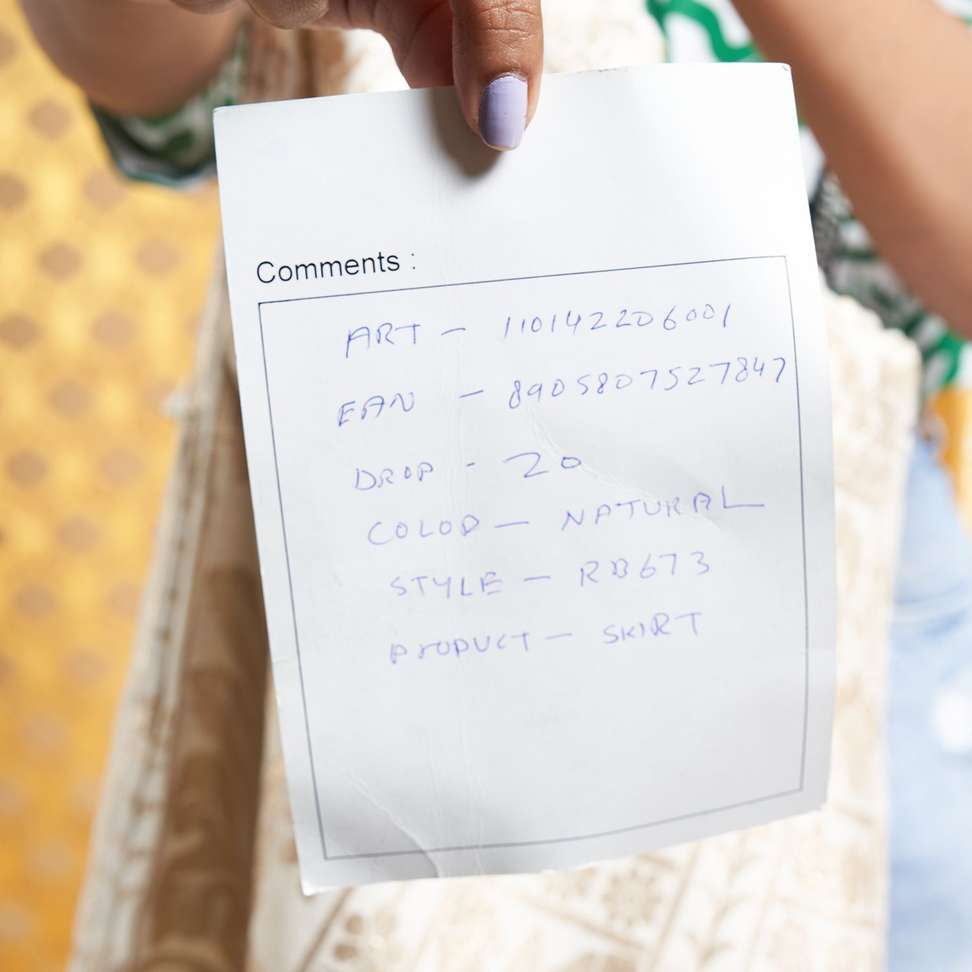 Comments :
ART - 110142206001
EAN - 8905807527847
DROP - 20
COLOD - NATURAL
STYLE - RB673
PRODUCT - SKIRT